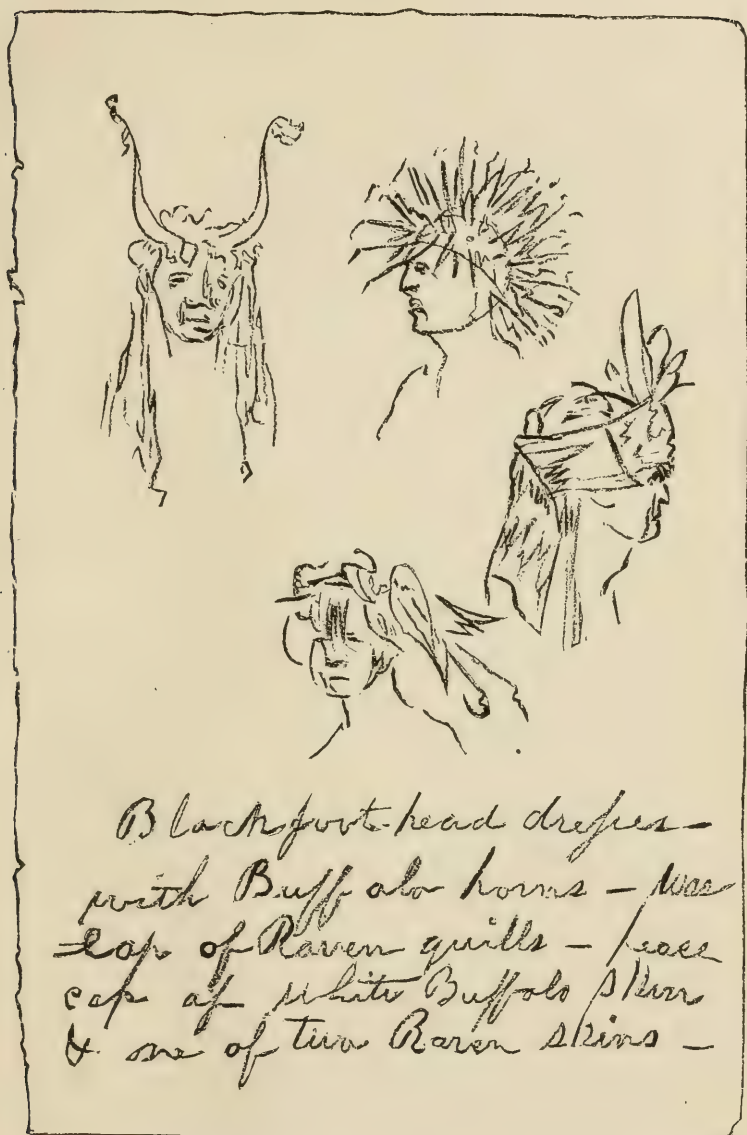 Blackfoot head dresses –
with Buffalo horns – War
Cap of Raven quills – peace
cap of white Buffalo skin
& one of two Raven skins –